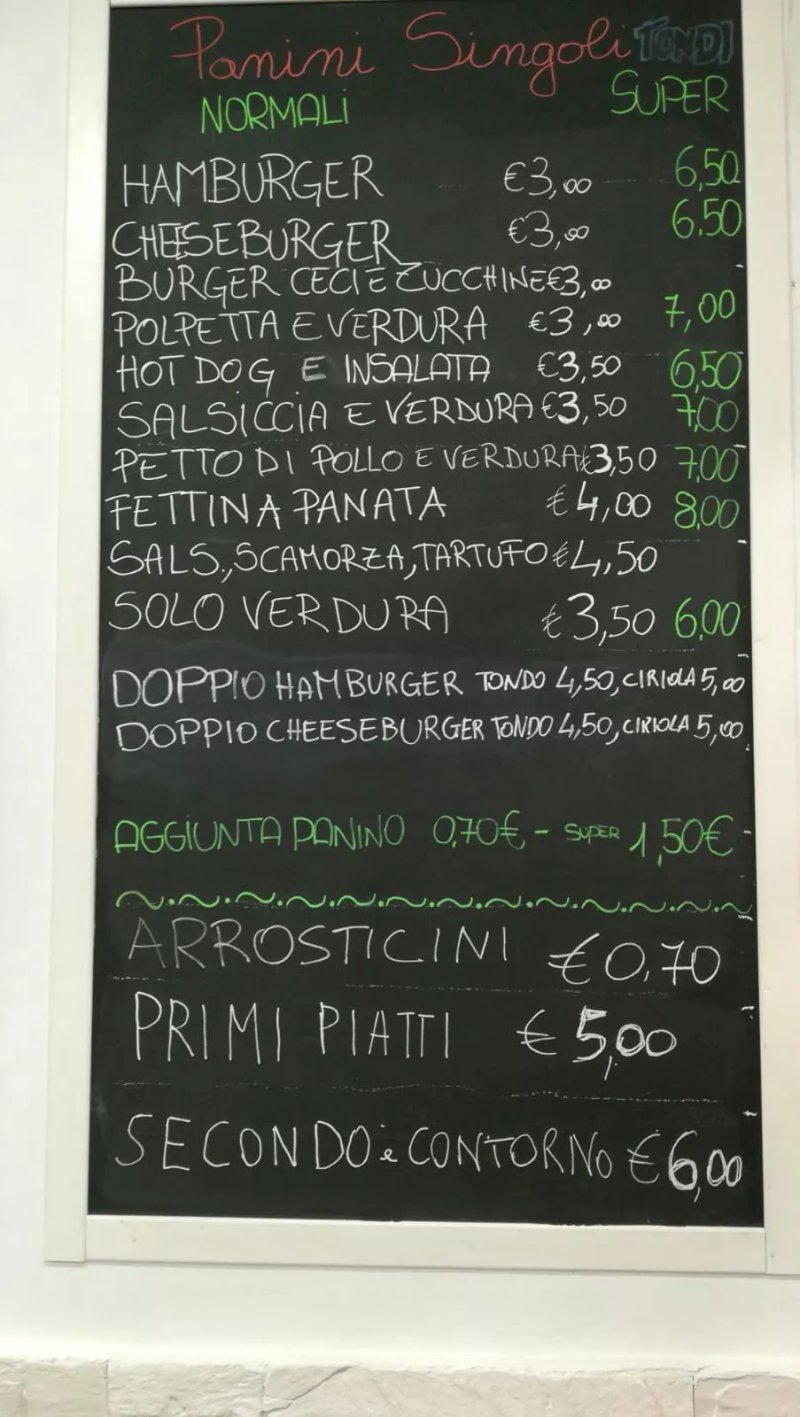 Panini Singoli TONDI
NORMALI SUPER
HAMBURGER €3,00 6,50
CHEESEBURGER €3,00 6.50
BURGER CECI E ZUCCHINE €3,00
POLPETTA E VERDURA €3,00 7,00
HOT DOG E INSALATA €3,50 6,50
SALSICCIA E VERDURA €3,50 7,00
PETTO DI POLLO E VERDURA €3,50 7,00
FETTINA PANATA €4,00 8,00
SALS., SCAMORZA, TARTUFO €4,50
SOLO VERDURA €3,50 6,00
DOPPIO HAMBURGER TONDO 4,50, CIRIOLA 5,00
DOPPIO CHEESEBURGER TONDO 4,50, CIRIOLA 5,00
AGGIUNTA PANINO 0,70€ - SUPER 1,50€
ARROSTICINI €0,70
PRIMI PIATTI €5,00
SECONDO e CONTORNO €6,00